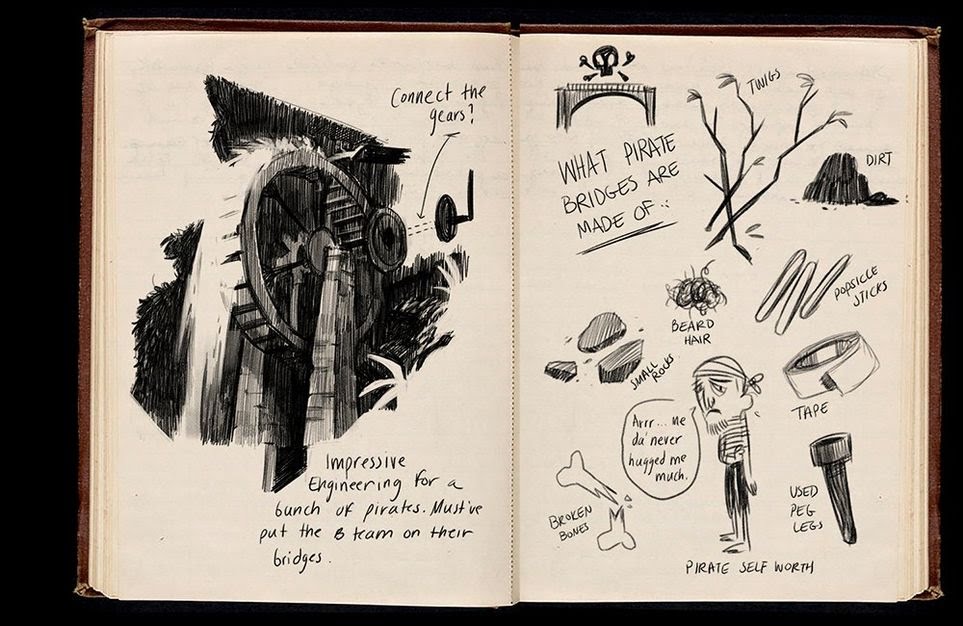 Connect the
gears?
Impressive
Engineering for a
bunch of pirates. Must've
put the B team on their
bridges.
WHAT PIRATE
BRIDGES ARE
MADE OF:
TWIGS
DIRT
BEARD
HAIR
POPSICLE
STICKS
SMALL
ROCKS
TAPE
Arrr... Me
da' never
hugged me
much.
BROKEN
BONES
USED
PEG
LEGS
PIRATE SELF WORTH